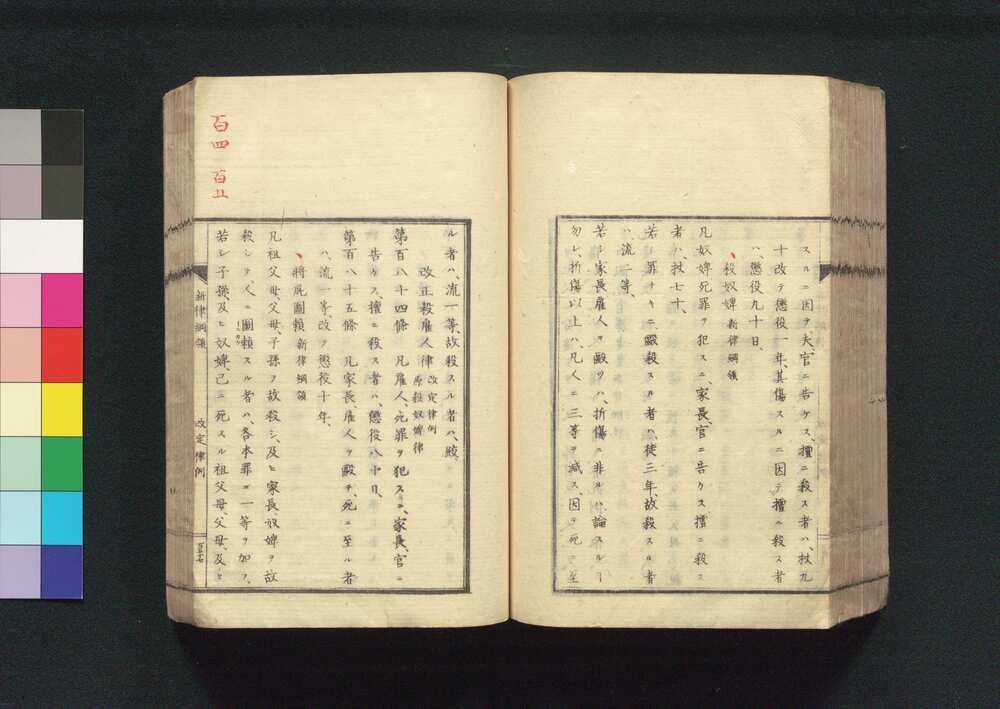 スルニ因ヲ夫、官ニ告ケス、擅ニ殺ス者ハ、杖九
十改テ懲役一年、其傷スルニ因テ擅ニ殺ス者
ハ、懲役九十日、
殺奴婢 新律綱領
凡奴婢死罪ヲ犯スニ、家長、官ニ告ケス擅ニ殺ス
者ハ、杖七十、
若シ罪ナキニ、毆殺スル者ハ、徒三年、故殺スル者
ハ、流一等、
若シ家長雇人ヲ毆ツハ、折傷ニ非レハ、論スルヿ
勿レ、折傷以上ハ、凡人ニ三等ヲ減ス、因テ死ニ至
ル者ハ、流一等、故殺スル者ハ、絞、
改正殺雇人律 改定律例 原殺奴婢律
第百八十四條 凡雇人、死罪ヲ犯スニ、家長、官ニ
告ケス、擅ニ殺ス者ハ、懲役八十日、
第百八十五條 凡家長、雇人ヲ毆チ、死ニ至ル者
ハ、流一等、改テ懲役十年、
將屍圖賴 新律綱領
凡祖父母、父母、子孫ヲ故殺シ、及ヒ家長、奴婢ヲ故
殺シテ、人ニ圖賴スル者ハ、各本罪ニ一等ヲ加フ、
若シ子孫、及ヒ奴婢、已ニ死スル祖父母、父母、及ヒ
新律綱領 改定律例
百四 百五